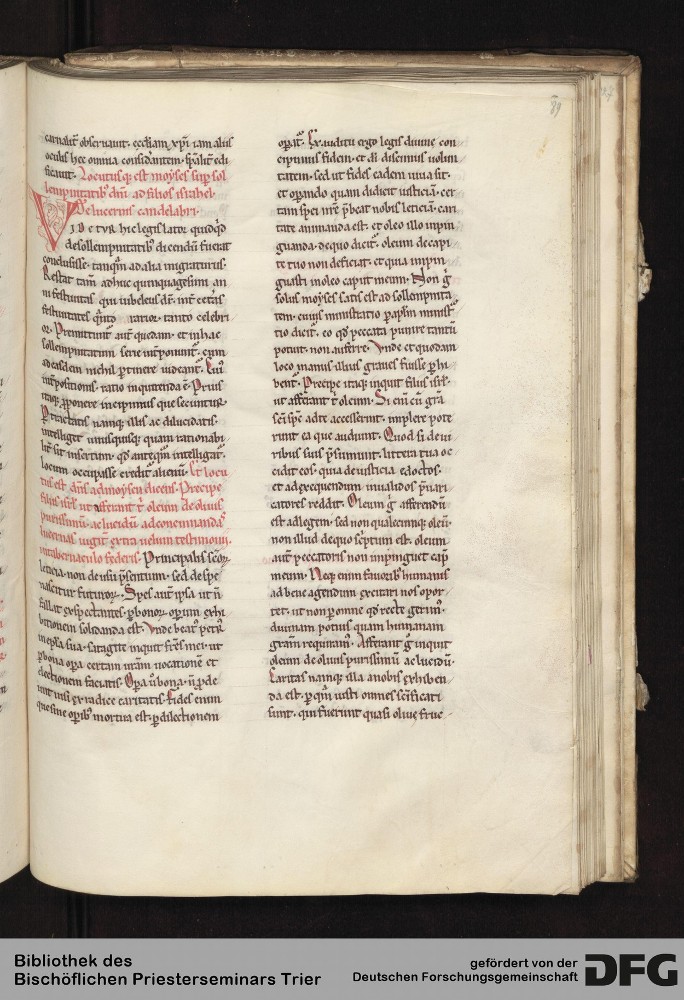 89
carnalit̄ obseruauit. ęcclīam xp̄i iam aliis
oculis hęc omnia considerantem. sp̄alit̄ edi
ficauit. Locutusq; est moyses sup sol
lempnitatib; dn̄i ad filios israhel.
De lucernis candelabri.
VIDETVR hic legislator quidq̄d
de sollempnitatib; dicendū fuerat
conclusisse. tanq̄m ad alia migraturus.
Restat tam̄ adhuc quinquagesimi an
ni festiuitas qui iubeleus dr̄. int̄ cęteras
festiuitates q̄nto rarior. tanto celebri
or. Premittunt̄ aut̄ quedam. et in hac
sollempnitatum serie int̄ponunt̄. cum
ad easdem nichil p̄tinere uideant̄. Cui
int̄positionis. ratio inquirenda ē. Prius
itaq; p̄ponere incipimus que secuntur.
P̄tractatis namq; illis ac dilucidatis.
intelliget unusquisq; quam rationabi
lit̄ sit insertum. qd̄ anteq̄m intelligat̄.
locum occupasse credit̄ alienū. Et locu
tus est dn̄s ad moysen dicens. Precipe
filiis isrl̄ ut afferant t̄ oleum de oliuis
purissimū. ac lucidū ad concinnandas
lucernas iugit̄ extra uelum testimonii.
in tabernaculo federis. Principalis sc̄oꝝ
leticia. non de usu p̄sentium. sed de spe
nascitur futuroꝝ. Spes aut̄ ipsa ut n̄
fallat exspectantes. p̄ bonoꝝ operum exhi
bitionem solidanda est. Vnde beat̄ petr̄
in ep̄la sua. satagite inquit fr̄es mei. ut
p̄ bona opa certam ur̄am uocationē et
electionem faciatis. Opa ū bona. n̄ p̄de
unt nisi ex radice caritatis. Fides enim
que sine opib; mortua est. p̄ dilectionem
opat̄. Ex auditu ergo legis diuine con
cipimus fidem. et di discimus uolun
tatem. sed ut fides eadem uiua sit.
et operando quam didicit iusticiā. cer
tam spei ur̄e p̄beat nobis leticiā. cari
tate animanda est. et oleo illo inpin
guanda. de quo dicit̄. oleum de capi
te tuo non deficiat. et quia inpin
guasti in oleo caput meum. Non ḡ
solus moyses satis est ad sollempnita
tem. cuius ministratio p̄ ap̄lm ministr̄
tio dicit̄. eo qd̄ peccata punire tantū
potuit. non auferre. Vnde et quodam
loco manus illius graues fuisse p̄hi
bent̄. Precipe itaq; inquit filiis isrl̄.
ut afferant t̄ oleum. Si enī cū gr̄a
sc̄i sp̄c ad te accesserint. implere pote
runt ea que audiunt. Quod si de ui
ribus suis p̄sumunt. littera tua oc
cidit eos. quia de iusticia edoctos.
et ad exequendum inualidos p̄uari
catores reddit. Oleum ḡ afferendū
est ad legem. sed non qualecumq; oleū.
non illud de quo sc̄ptum est. oleum
aut̄ peccatoris non impinguet cap̄
meum. Neq; enim fauorib; humanis
ad bene agendum excitari nos opor
tet. ut non p̄ omne qd̄ recte gerim̄.
diuinam potius quam humanam
gratiam requiram̄. Afferant ḡ inquit
oleum de oliuis purissimū ac lucidū.
Caritas namq; illa a nobis exhiben
da est. p̄ q̄m iusti omnes sc̄ificati
sunt. qui fuerunt quasi oliuę fruc
Bibliothek des
Bischöflichen Priesterseminars Trier
gefördert von der
Deutschen Forschungsgemeinschaft
DFG